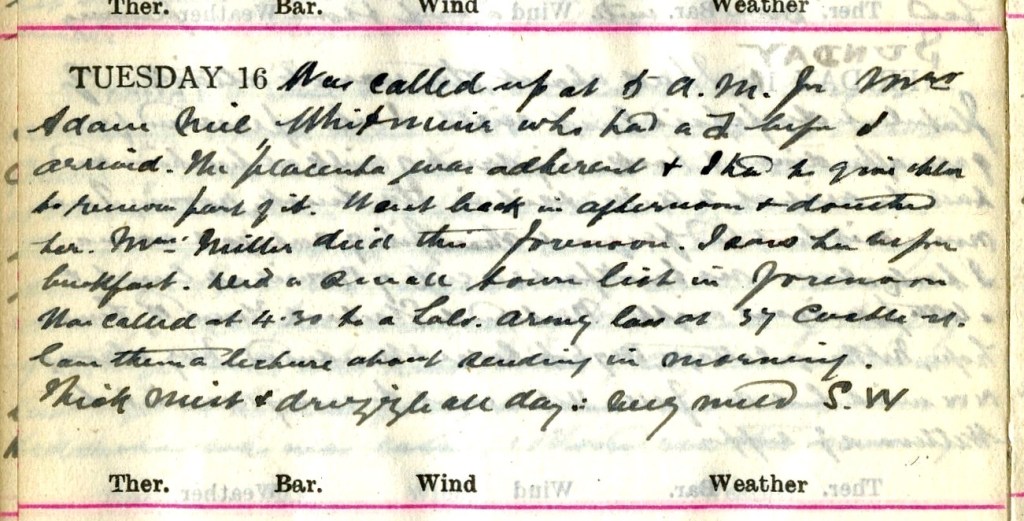 Ther. Bar. Wind Weather
TUESDAY 16 Was called up at 5 A.M. for Mrs
Adam Neil, Whitmuir who had a before I
arrived. The placenta was adherent & I had to give chlor
to remove part of it. Went back in afternoon & douched
her. Mrs Miller died this forenoon. I saw her before
breakfast. Did a small town list in forenoon
Was called at 4.30 to a Salv. Army lass at 37 Castle st.
Gave them a lecture about sending in morning.
Thick mist & drizzle all day: very mild S.W
Ther. Bar. Wind Weather